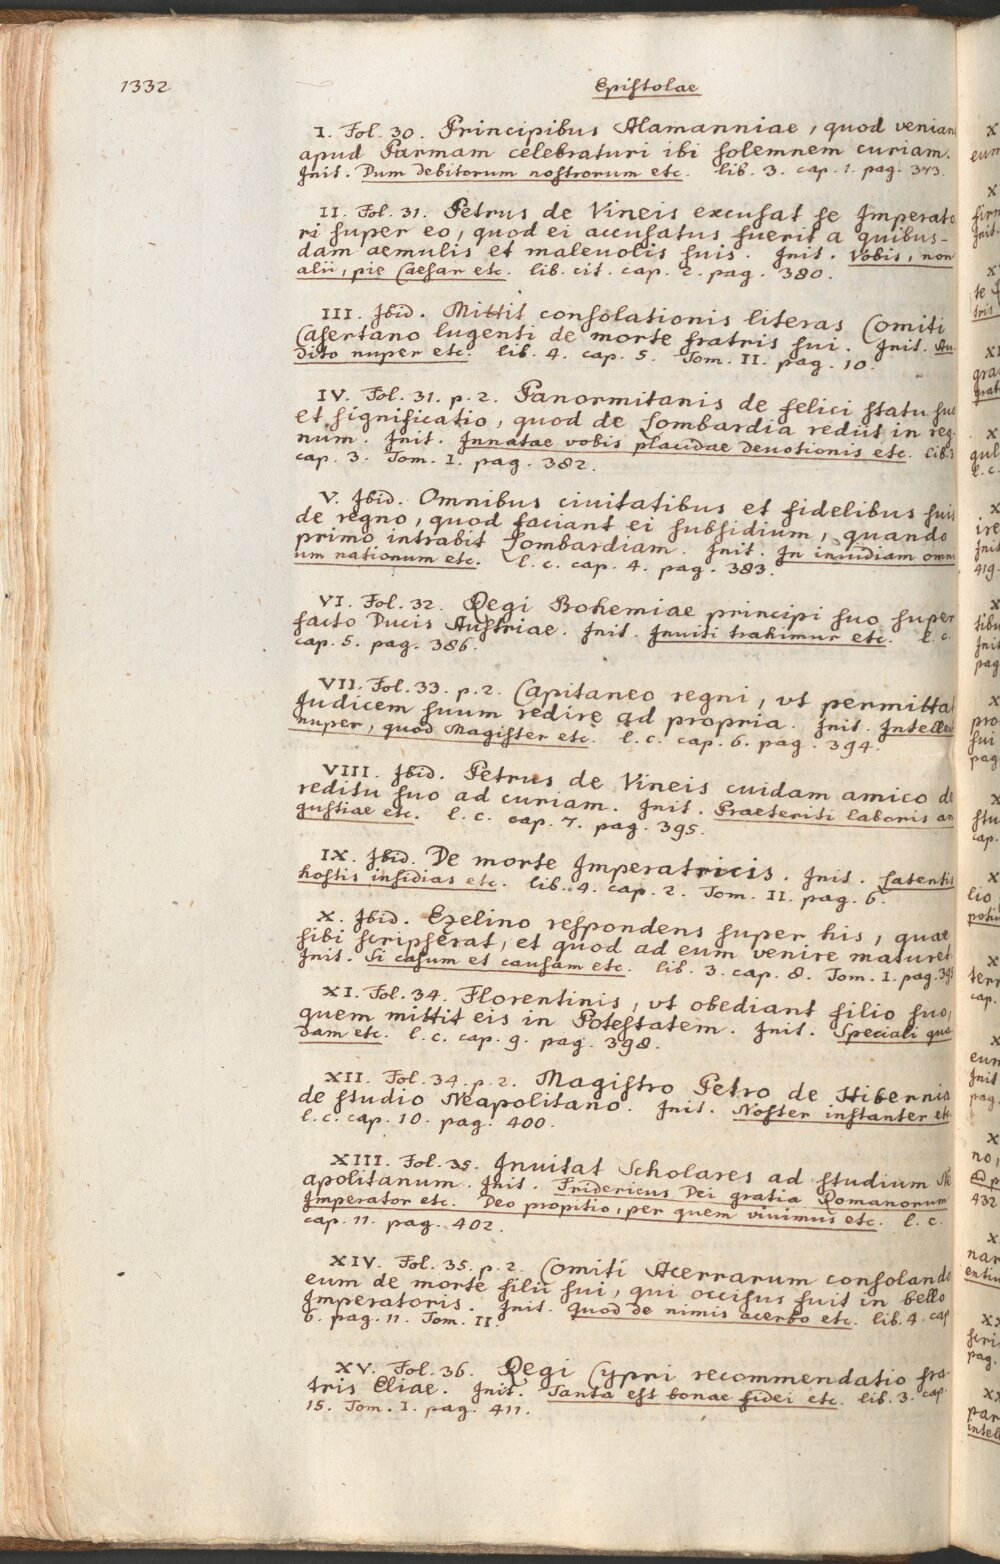 1332
Epistolae
I. Fol. 30. Principibus Alamanniae, quod venian
apud Parmam celebraturi ibi solemnem curiam.
Init. Dum debitorum nostrorum etc. lib. 3. cap. 1. pag. 373.
II. Fol. 31. Petrus de Vineis excusat se Imperato
ri super eo, quod ei accusatus fuerit a quibus-
dam aemulis et maleuolis suis. Init. Vobis, non
alii, pie Caesar etc. lib. cit. cap. 2. pag. 380.
III. Ibid. Mittit consolationis literas Comiti
Casertano lugenti de morte fratris sui. Init. Au
dito nuper etc. lib. 4. cap. 5. Tom. II. pag. 10.
IV. Fol. 31. p. 2. Panormitanis de felici statu suo
et significatio, quod de Lombardia rediit in reg
num. Init. Innatae vobis placidae deuotionis etc. lib. 3
cap. 3. Tom. I. pag. 382.
V. Ibid. Omnibus ciuitatibus et fidelibus suis
de regno, quod faciant ei subsidium, quando
primo intrabit Lombardiam. Init. In inuidiam omni
um nationum etc. l. c. cap. 4. pag. 383.
VI. Fol. 32. Regi Bohemiae principi suo super
facto Ducis Austriae. Init. Inuiti trahimur etc. l. c.
cap. 5. pag. 386.
VII. Fol. 33. p. 2. Capitaneo regni, vt permittat
Iudicem suum redire ad propria. Init. Intellex
nuper, quod Magister etc. l. c. cap. 6. pag. 394.
VIII. Ibid. Petrus de Vineis cuidam amico de
reditu suo ad curiam. Init. Praeteriti laboris an
gustiae etc. l. c. cap. 7. pag. 395.
IX. Ibid. De morte Imperatricis. Init. Latentis
hostis insidias etc. lib. 4. cap. 2. Tom. II. pag. 6.
X. Ibid. Ezelino respondens super his, quae
sibi scripserat, et quod ad eum venire maturet.
Init. Si casum et causam etc. lib. 3. cap. 8. Tom. I. pag. 395
XI. Fol. 34. Florentinis, vt obediant filio suo,
quem mittit eis in Potestatem. Init. Speciali qua
dam etc. l. c. cap. 9. pag. 398.
XII. Fol. 34. p. 2. Magistro Petro de Hibernia
de studio Neapolitano. Init. Noster instanter etc
l. c. cap. 10. pag. 400.
XIII. Fol. 35. Inuitat Scholares ad studium Ne
apolitanum. Init. Fridericus Dei gratia Romanorum
Imperator etc. Deo propitio, per quem viuimus etc. l. c.
cap. 11. pag. 402.
XIV. Fol. 35. p. 2. Comiti Acerrarum consolando
eum de morte filii sui, qui occisus fuit in bello
Imperatoris. Init. Quod de nimis acerbo etc. lib. 4. cap
6. pag. 11. Tom. II.
XV. Fol. 36. Regi Cypri recommendatio fra
tris Eliae. Init. Tanta est bonae fidei etc. lib. 3. cap.
15. Tom. I. pag. 411.